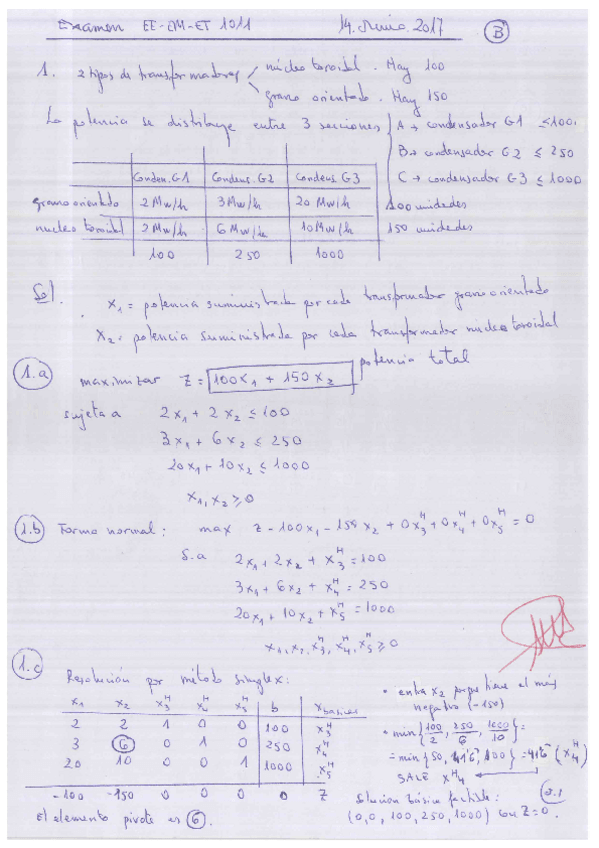 Examen EE-EM-ET 1011 14. Junio. 2017 B
1. 2 tipos de transformadores núcleo toroidal. Hay 100
grano orientado. Hay 150
La potencia se distribuye entre 3 secciones A → condensador G1 ≤100.
B → condensador G2 ≤ 250
C → condensador G3 ≤ 1000
Conden. G1 Condens. G2 Condens. G3
grano orientado 2 Mw/h 3 Mw/h 20 Mw/h 100 unidades
nucleo toroidal 2 Mw/h 6 Mw/h 10 Mw/h 150 unidades
100 250 1000
Sol.
x₁ = potencia suministrada por cada transformador grano orientado
x₂ = potencia suministrada por cada transformador nucleo toroidal
1.a maximizar z = 100x₁ + 150x₂ potencia total
sujeta a 2x₁ + 2x₂ ≤ 100
3x₁ + 6x₂ ≤ 250
20x₁ + 10x₂ ≤ 1000
x₁, x₂ ≥ 0
1.b Forma normal: max z - 100x₁ - 150x₂ + 0x₃ᴴ + 0x₄ᴴ + 0x₅ᴴ = 0
s.a 2x₁ + 2x₂ + x₃ᴴ = 100
3x₁ + 6x₂ + x₄ᴴ = 250
20x₁ + 10x₂ + x₅ᴴ = 1000
x₁, x₂, x₃ᴴ, x₄ᴴ, x₅ᴴ ≥ 0
1.c Resolución por método simplex:
x₁ x₂ x₃ᴴ x₄ᴴ x₅ᴴ b xbasicas
2 2 1 0 0 100 x₃ᴴ
3 6 0 1 0 250 x₄ᴴ
20 10 0 0 1 1000 x₅ᴴ
-100 -150 0 0 0 0 z
El elemento pivote es 6.
• entra x₂ porque tiene el más
negativo (-150)
• min{100/2, 250/6, 1000/10} =
= min{50, 41'6, 100} = 41'6 (x₄ᴴ)
SALE x₄ᴴ
Solucion básica factible:
(0,0, 100, 250, 1000) con Z=0.